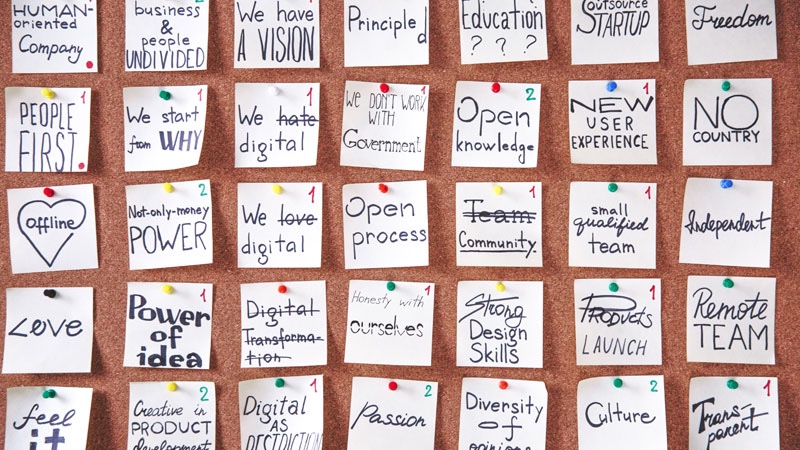 HUMAN-
oriented
Company
2
business
&
people
UNDIVIDED
1
We have
A VISION
Principled
Education
? ? ?
Outsource
STARTUP
Freedom
1
PEOPLE
FIRST
1
We start
from WHY
1
We hate
digital
1
WE DON'T WORK
WITH
Government
2
Open
knowledge
1
NEW
USER
EXPERIENCE
1
NO
COUNTRY
offline
2
Not-only-money
POWER
1
We love
digital
Open
process
1
Team
Community
1
small
qualified
team
Independent
Love
1
Power
of
idea
Digital
Transforma-
tion
1
Honesty with
ourselves
Strong
Design
Skills
1
PRODUCTS
LAUNCH
Remote
TEAM
feel
it
2
Creative in
PRODUCT
development
1
Digital
AS
DESTRICTION
2
Passion
Diversity
of
opinions
2
Culture
1
Trans-
parent